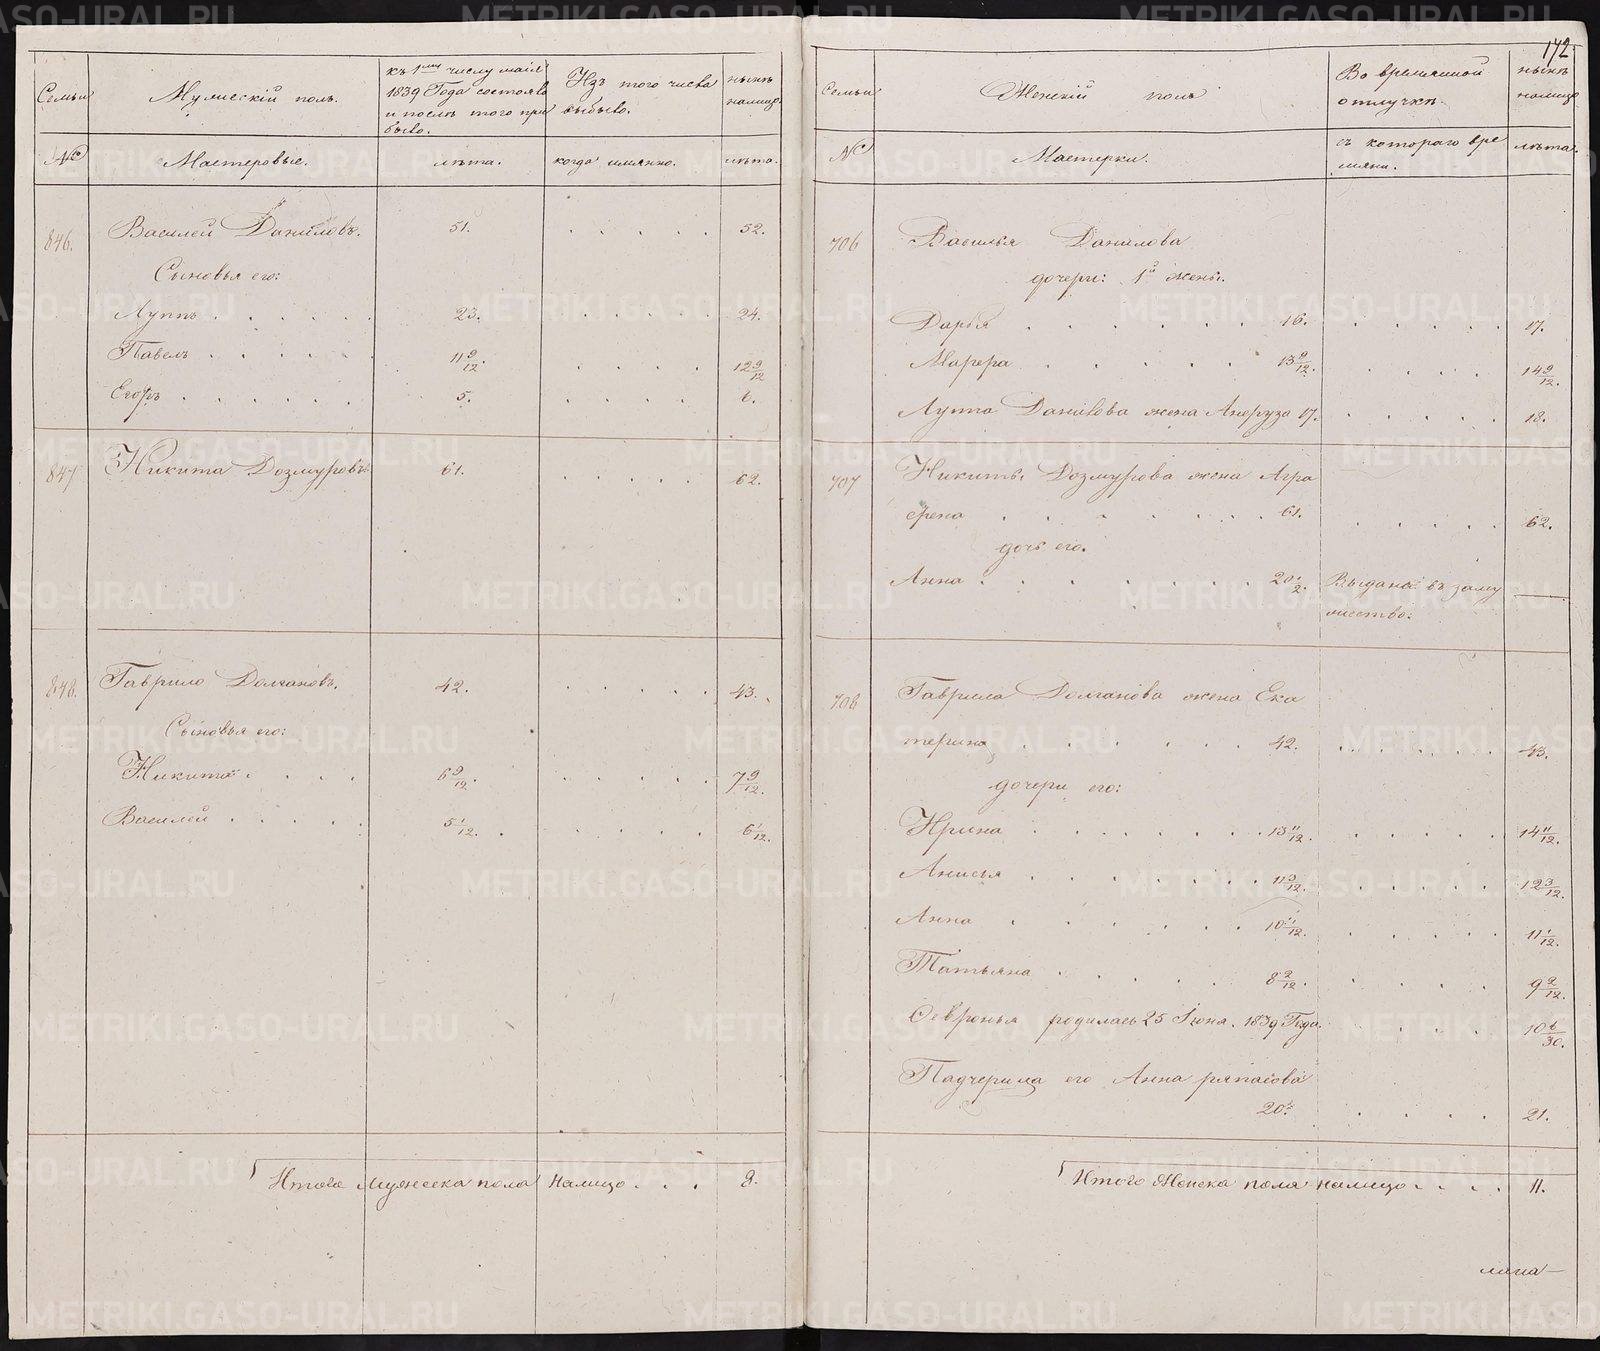 172.
Семьи
Мужескій полъ.
къ 1му числу маія
1839 Года состояло
и послѣ того при
было.
Изъ того числа
выбыло.
нынѣ
налицо.
№
Мастеровые.
лѣта.
когда имянно.
лѣта.
846.
Василей Даниловъ.
51.
52.
Сыновья его:
Луппъ
23.
24.
Павелъ
11 9/12.
12 9/12
Егоръ
5.
6.
847
Никита Дозмуровъ
61.
62.
848.
Гаврило Долгановъ.
42.
43.
Сыновья его:
Никита
6 9/12.
7 9/12.
Василей
5 1/12.
6 1/12.
Итого Мужеска пола налицо
8.
Семьи
Женскій полъ
Во времянной
отлучкѣ
нынѣ
налицо
№
Мастерки.
съ котораго вре
мяни.
лѣта.
706
Василья Данилова
дочери: 1й жены.
Дарья
16.
17.
13 9/12.
14 9/12.
Луппа Данилова жена 17.
18.
707
Никиты Дозмурова жена Агра
фена
61.
62.
дочь его.
Анна
20 1/2.
Выдана въ заму
жество.
708
Гаврила Долганова жена Ека
терина
42.
43.
дочери его:
Ирина
13 11/12.
14 11/12.
Анисья
11 3/12.
12 3/12.
Анна
11 1/12.
Татьяна
8 2/12.
9 2/12.
Февронья родилась 25 Іюня 1839 Года.
10 6/30.
Падчерица его Анна
20.
21.
Итого Женска пола налицо
11.
METRIKI.GASO-URAL.RU